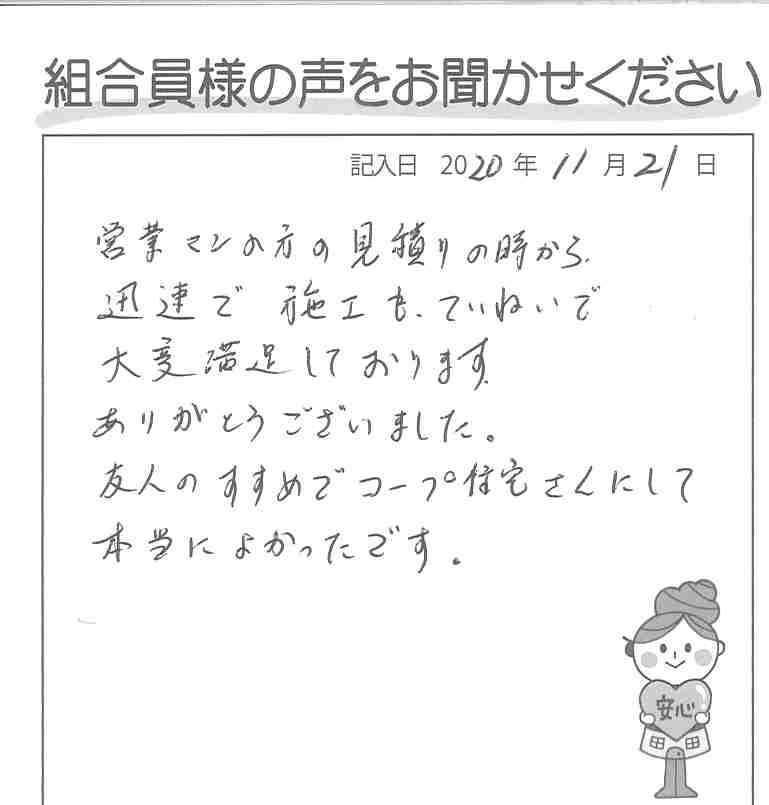 組合員様の声をお聞かせください
記入日 2020年 11月21日
営業マンの方の見積りの時から、
迅速で 施工も、ていねいで
大変満足しております。
ありがとうございました。
友人のすすめでコープ住宅さんにして
本当によかったです。
安心